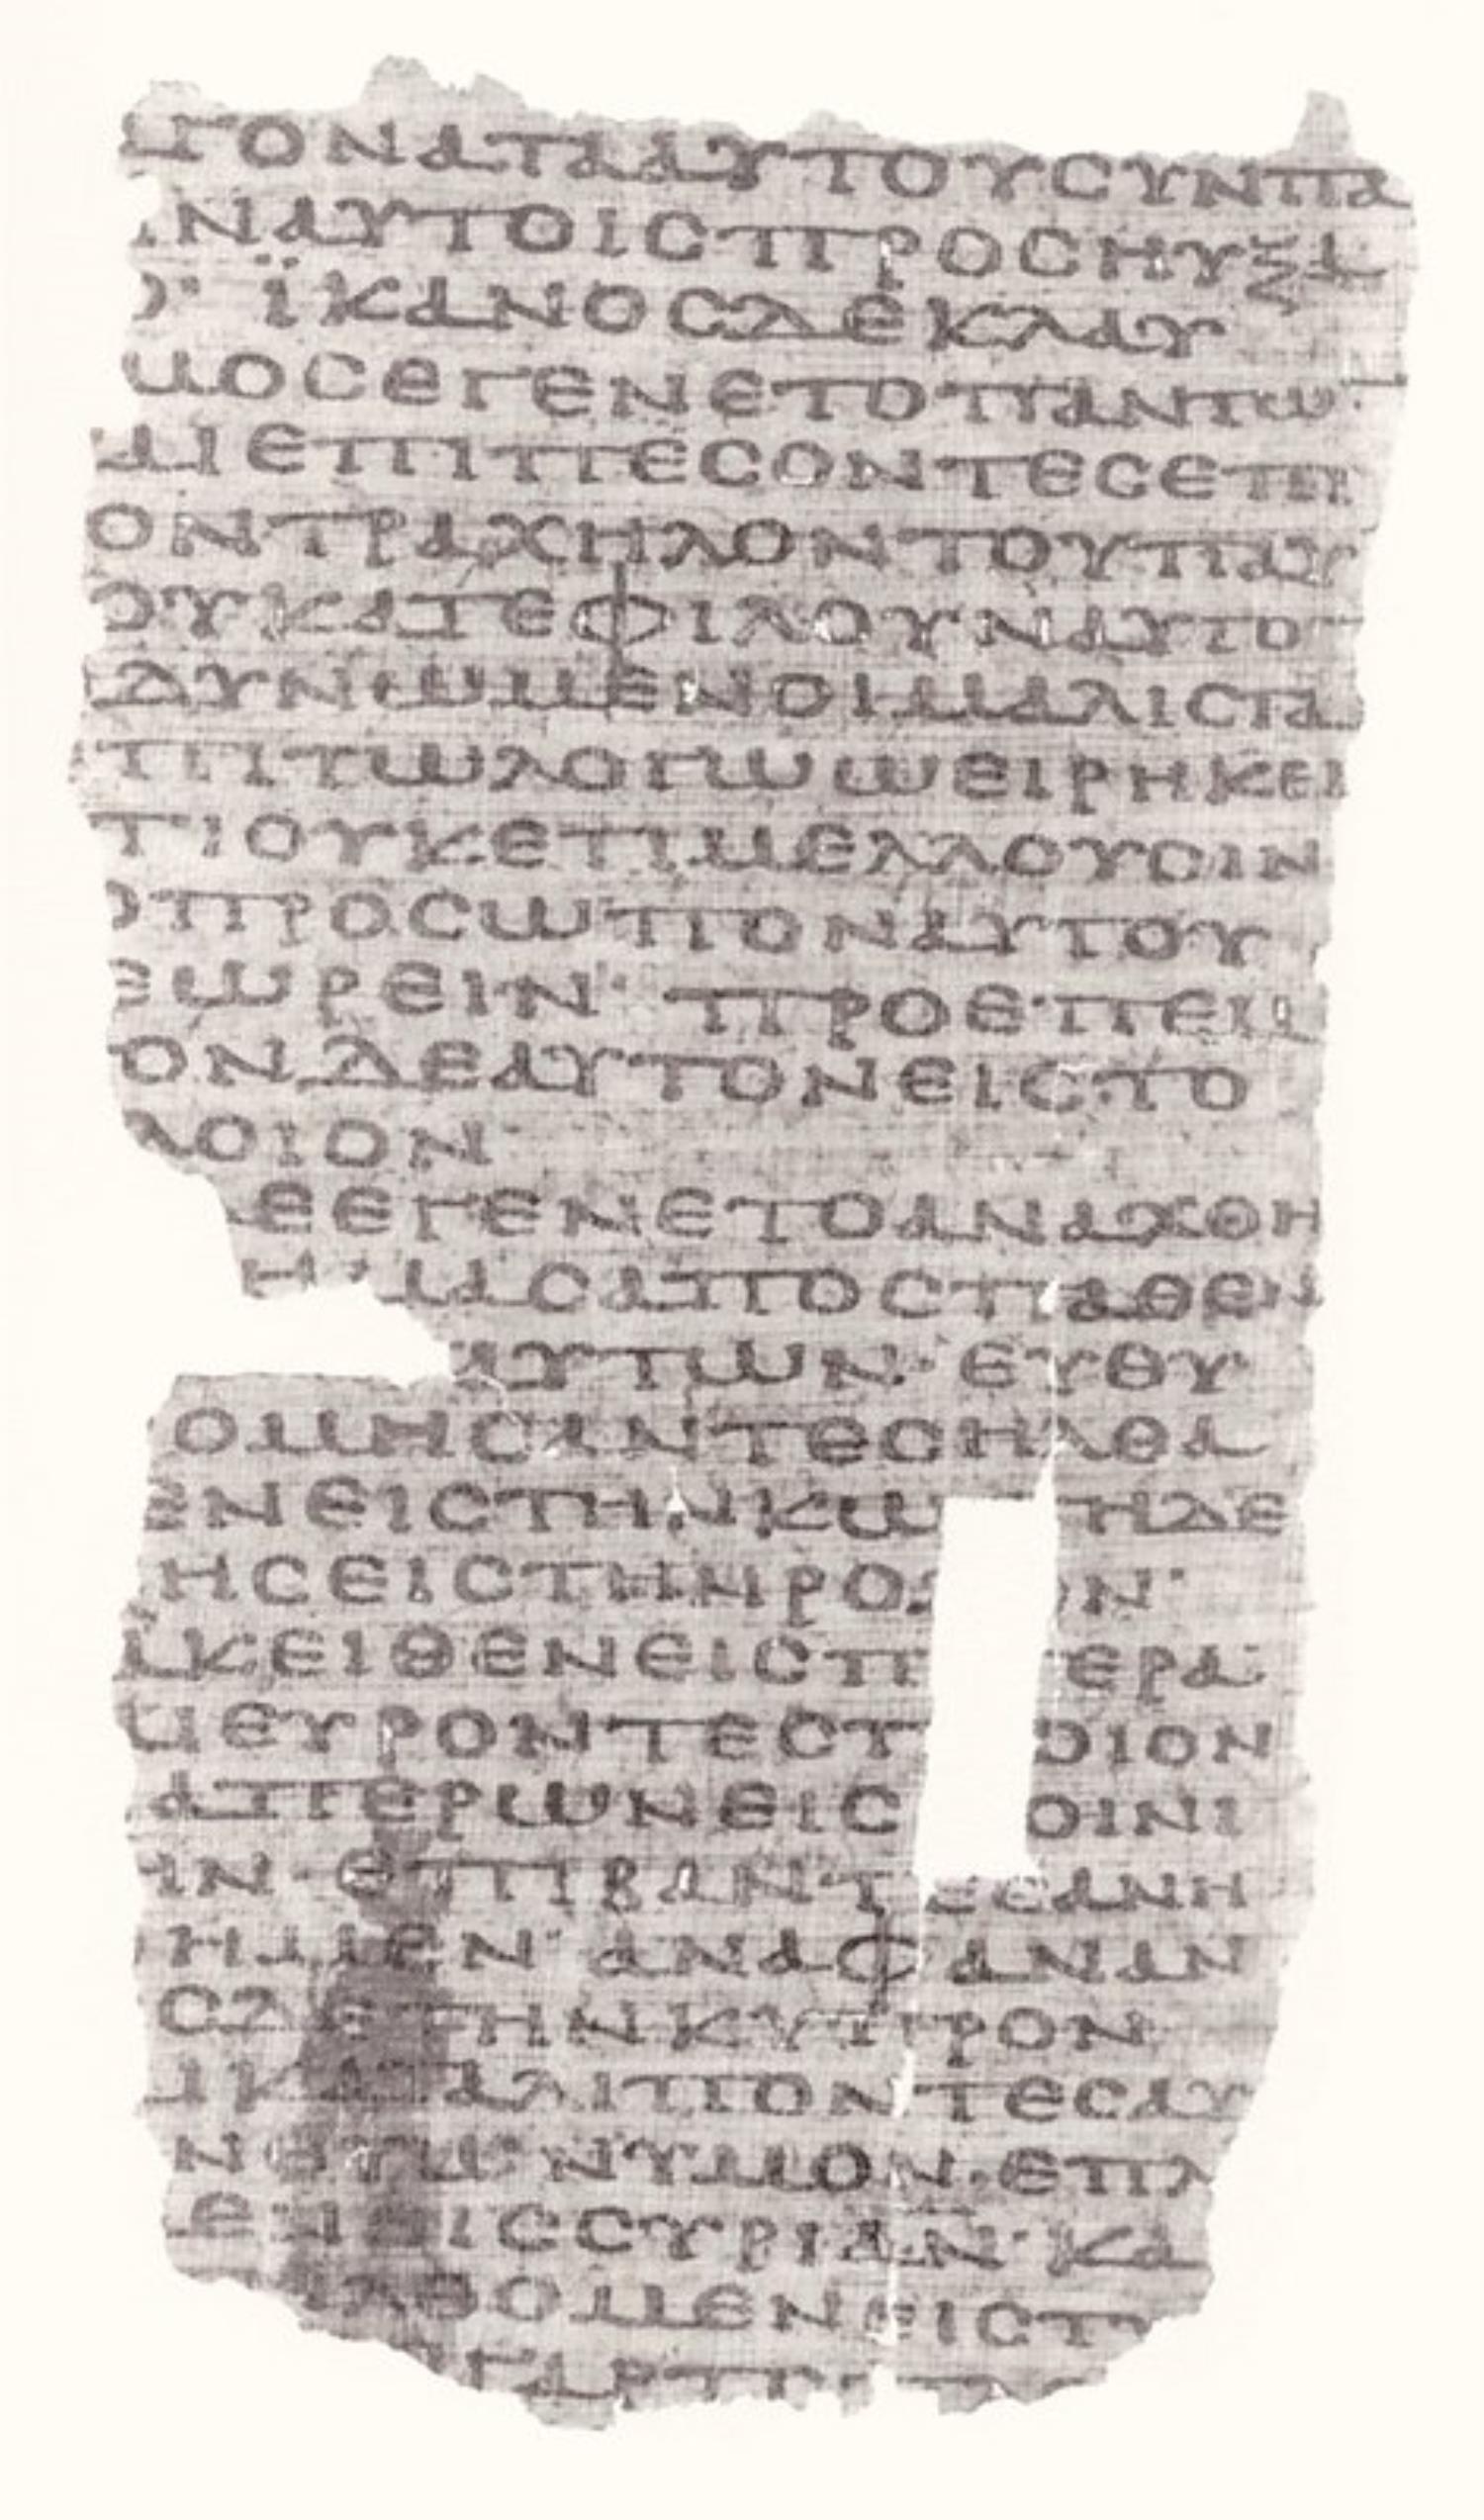 ΓΟΝΑΤΑΑΥΤΟΥСΥΝΠΑ
ΙΝΑΥΤΟΙСΠΡΟСΗΥΞΑ
Ο· ΪΚΑΝΟСΔΕΚΛΑΥ
ΜΟСΕΓΕΝΕΤΟΠΑΝΤΩ
ΑΙΕΠΙΠΕСΟΝΤΕСΕΠΙ
ΟΝΤΡΑΧΗΛΟΝΤΟΥΠΑΥ
ΟΥΚΑΤΕΦΙΛΟΥΝΑΥΤΟ
ΔΥΝΩΜΕΝΟΙΜΑΛΙСΤΑ
ΠΙΤΩΛΟΓΩΩΕΙΡΗΚΕΙ
ΤΙΟΥΚΕΤΙΜΕΛΛΟΥСΙΝ
ΟΠΡΟСΩΠΟΝΑΥΤΟΥ
ΕΩΡΕΙΝ· ΠΡΟΕΠΕΜ
ΟΝΔΕΑΥΤΟΝΕΙСΤΟ
ΛΟΙΟΝ
ΕΕΓΕΝΕΤΟΑΝΑΧΘΗ
ΗΜΑСΑΠΟСΠΑΘΕΝ
ΑΥΤΩΝ· ΕΥΘΥ
ΟΜΗСΑΝΤΕСΗΛΘΑ
ΕΝΕΙСΤΗΝΚΩ ΤΗΔΕ
ΗСΕΙСΤΗΝΡΟ ΟΝ·
ΑΚΕΙΘΕΝΕΙСΠ ΤΕΡΑ
ΜΕΥΡΟΝΤΕСΠ ΟΙΟΝ
ΑΠΕΡΩΝΕΙС ΟΙΝΙ
ΗΝ· ΕΠΙΒΑΝΤΕСΑΝΗ
ΗΜΕΝ· ΑΝΑΦΑΝΑΝ
СΔΕΤΗΝΚΥΠΡΟΝ
ΙΚΑΤΑΛΙΠΟΝΤΕСΑΥ
ΝΕΥΩΝΥΜΟΝ· ΕΠΛ
ΕΙССΥΡΙΑΝ· ΚΑ
ΗΛΘΟΜΕΝΕΙСΤΥ
ΓΑΡΤ